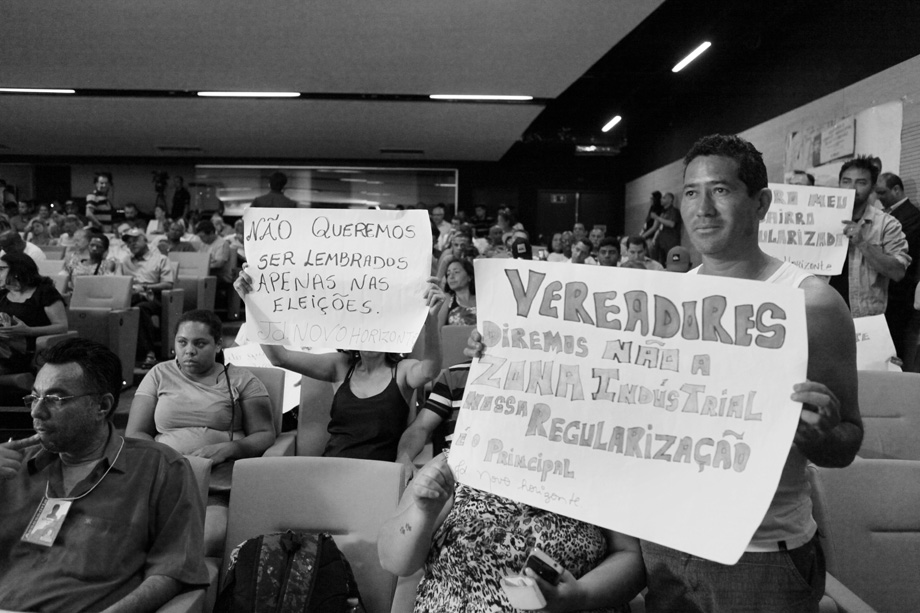 NÃO QUEREMOS
SER LEMBRADOS
APENAS NAS
ELEIÇÕES.
JD. NOVO HORIZONTE
VEREADORES
DIREMOS NÃO A
ZONA INDÚSTRIAL
NOSSA REGULARIZAÇÃO
É O PRINCIPAL
Novo horizonte
MEU
BAIRRO
Horizonte